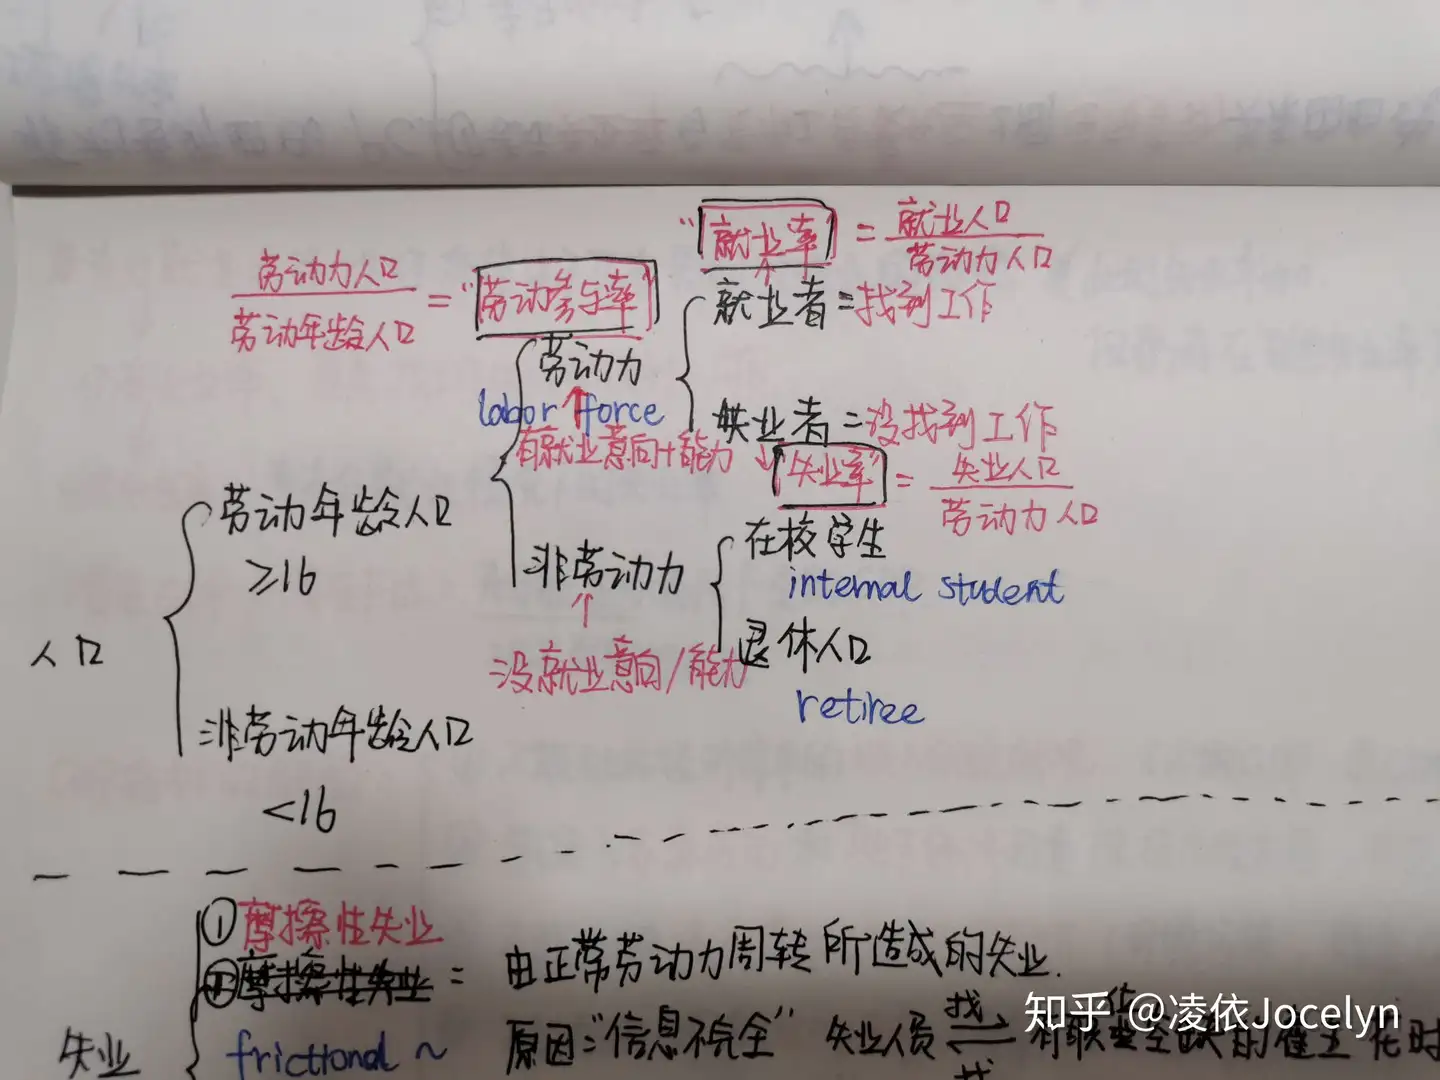 "就业率" = 就业人口 / 劳动力人口
劳动力人口 / 劳动年龄人口 = "劳动参与率"
就业者 = 找到工作
劳动力
labor force
有就业意向+能力
失业者 = 没找到工作
"失业率" = 失业人口 / 劳动力人口
劳动年龄人口
≥16
在校学生
internal student
非劳动力
没就业意向/能力
退休人口
retiree
人口
非劳动年龄人口
<16
①摩擦性失业
摩擦性失业 = 由正常劳动力周转所造成的失业.
失业
frictional ~ 原因:"信息不完全" 失业人员 找
知乎 @凌依Jocelyn